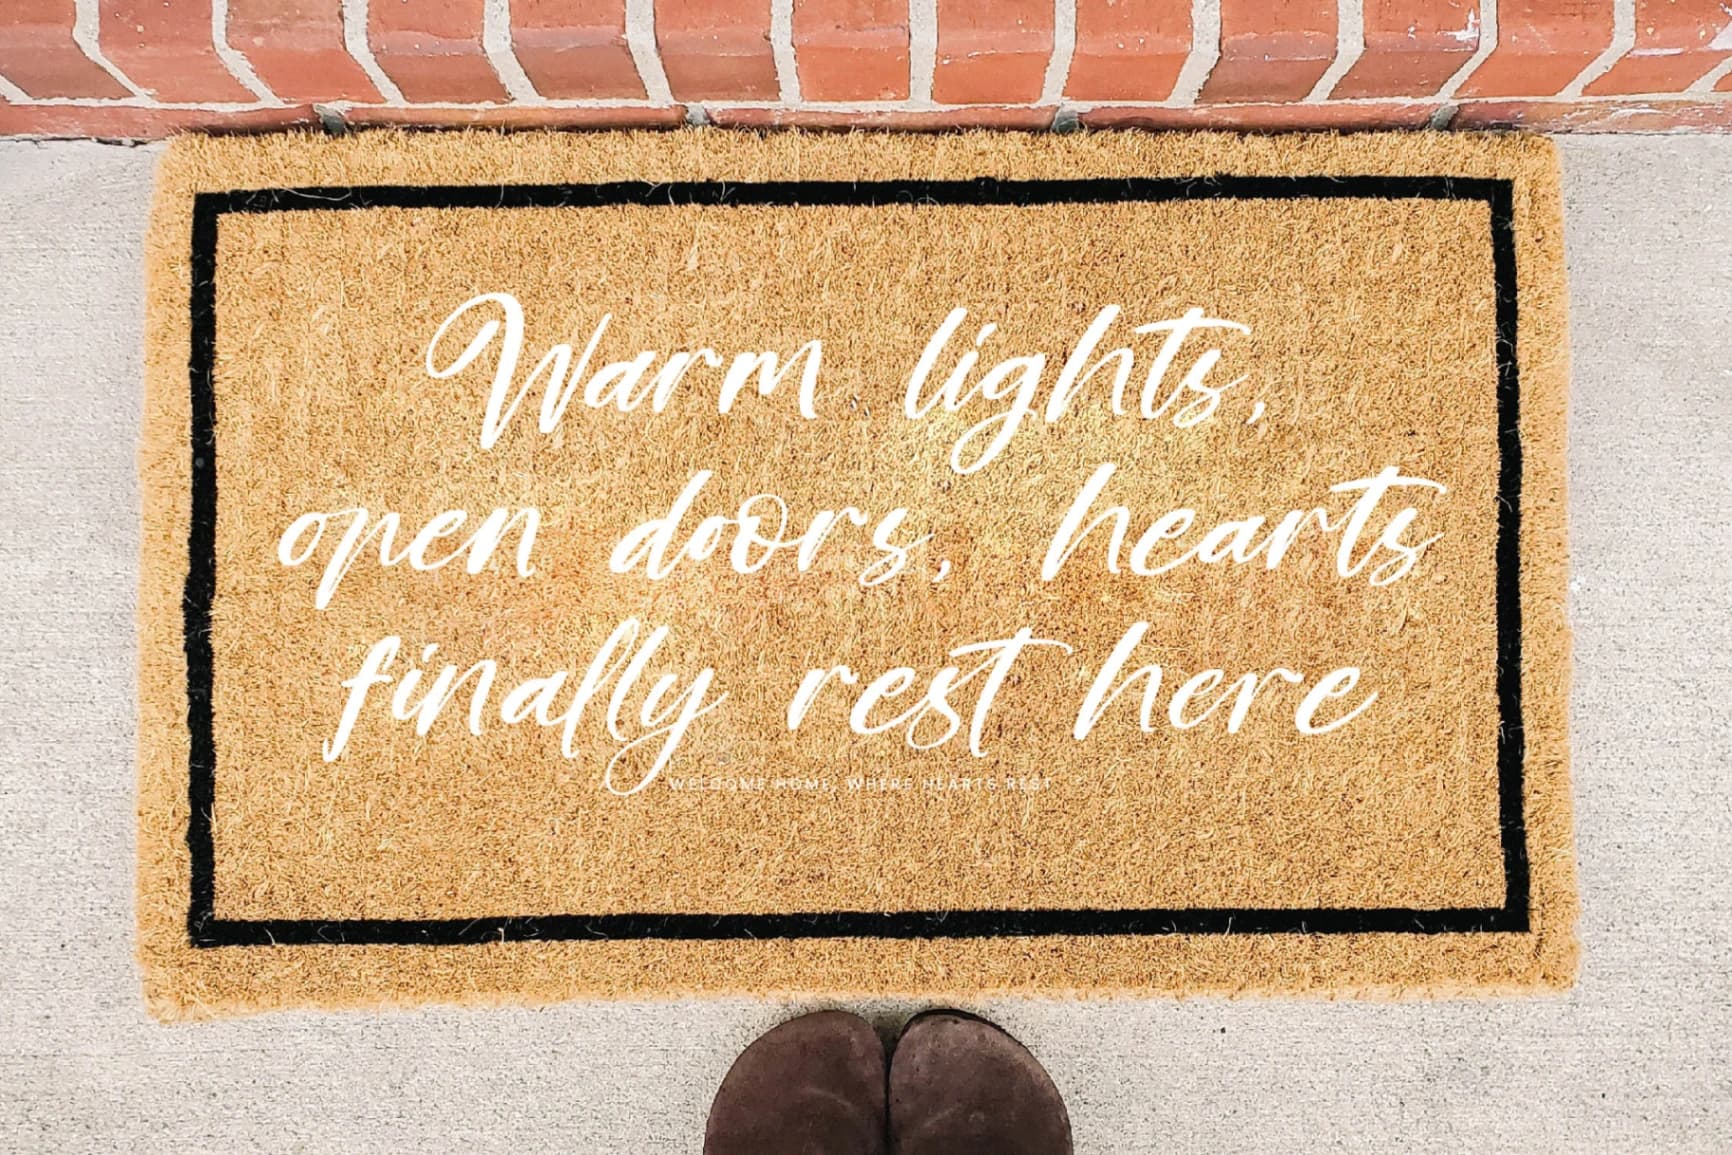 Warm lights,
open doors, hearts
finally rest here
WELCOME HOME, WHERE HEARTS REST